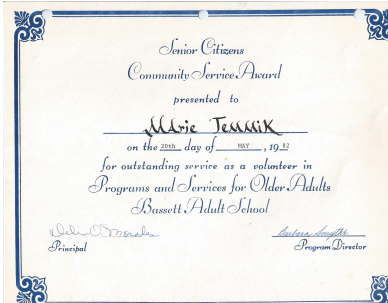 Senior Citizens
Community Service Award
presented to
Marie Temmik
on the 20th day of MAY, 1982
for outstanding service as a volunteer in
Programs and Services for Older Adults
Bassett Adult School
Barbara Smythe
Principal Program Director